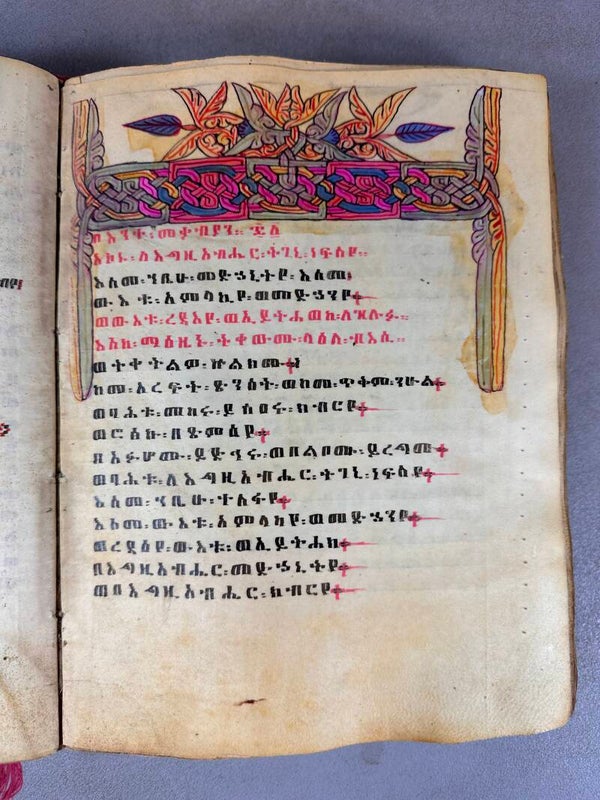 በእንተ፡
አኮኑ፡ለእግዚአብሔር፡ትገኒ፡ነፍስየ።
እስመ፡ኀቤሁ፡መድኃኒትየ፡እስመ፡
ውእቱ፡አምላኪየ፡ወመድኃንየ።
ወውእቱ፡ረዳእየ፡ወኢይትሐወክ፡
እስከ፡ማእዜኑ፡ትቀውሙ፡ላዕለ፡ብእሲ።
ወተቀትልዎ፡ኵልክሙ።
ከመ፡አረፍት፡ወከመ፡ጥቅም፡ንሁል።
ወባሕቱ፡መከሩ፡ይስዐሩ፡ክብርየ።
ወሮጽኩ፡በጽምዕየ።
በአፉሆሙ፡ይድኅሩ፡ወበልቦሙ፡ይረግሙ።
ወባሕቱ፡ለእግዚአብሔር፡ትገኒ፡ነፍስየ።
እስመ፡ኀቤሁ፡ተስፋየ።
እስመ፡ውእቱ፡አምላኪየ፡ወመድኃንየ።
ወረዳእየ፡ውእቱ፡
በእግዚአብሔር፡መድኃኒትየ።
ወበእግዚአብሔር፡ክብርየ።